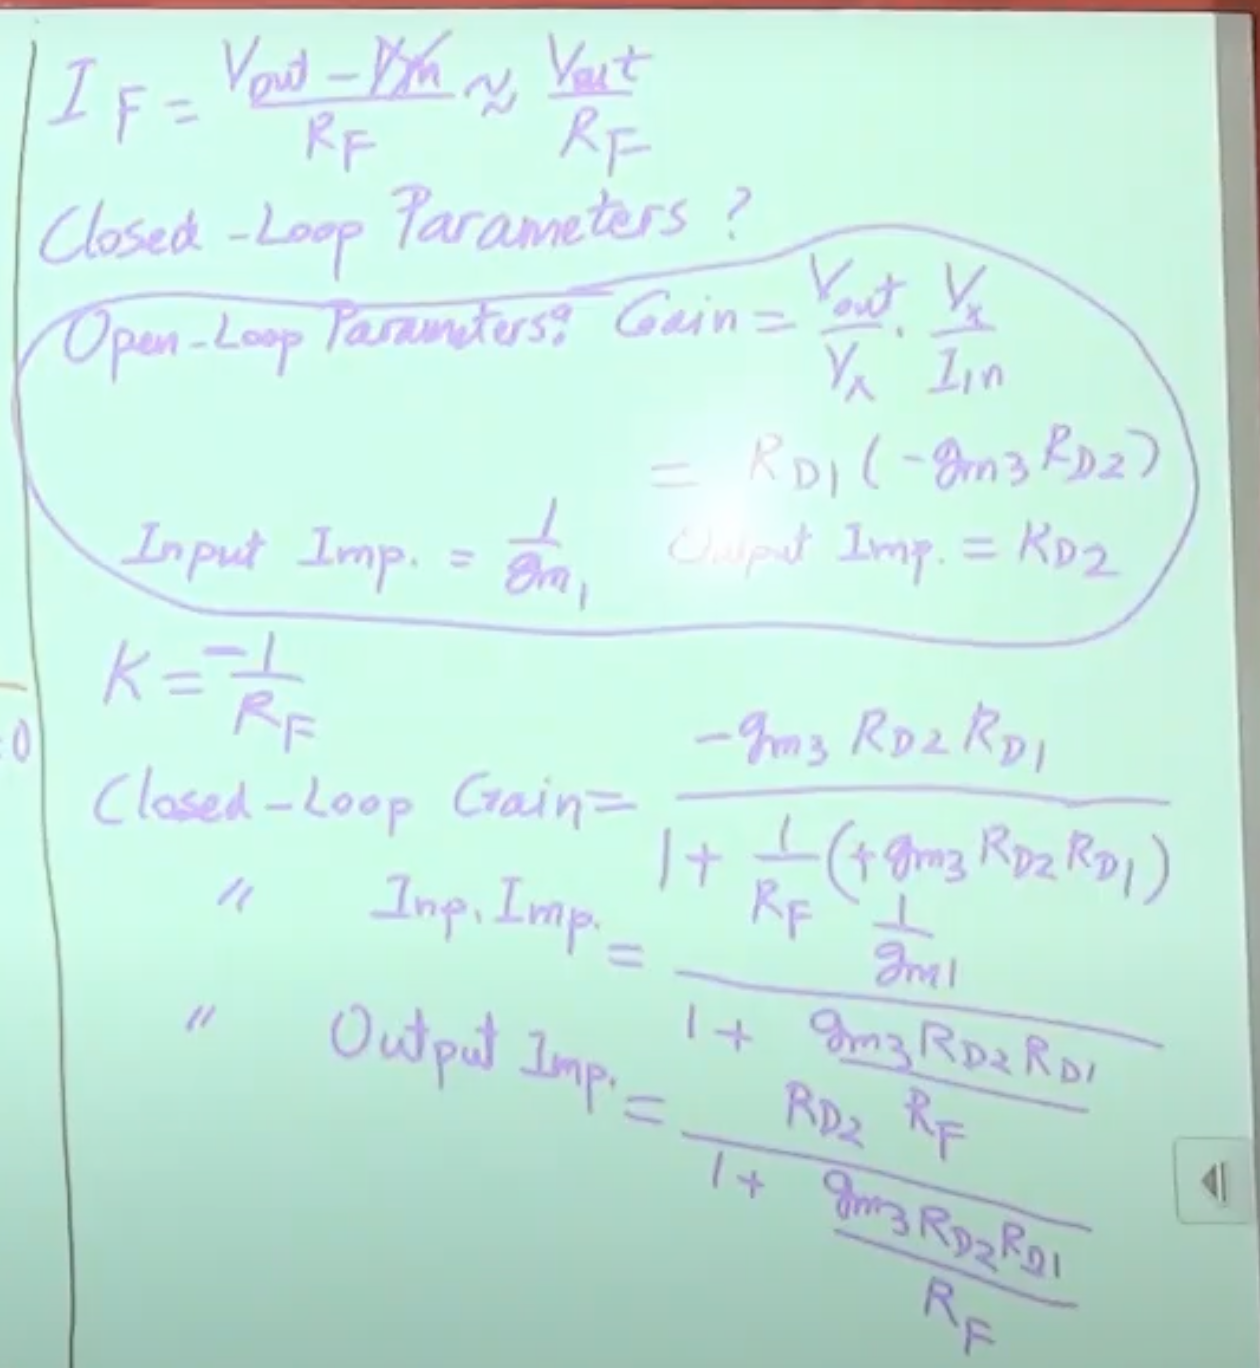 I_F = (Vout - Vin)/R_F ≈ Vout/R_F
Closed-Loop Parameters?
Open-Loop Parameters: Gain = Vout/Vx · Vx/Iin
= RD1 (-gm3 RD2)
Input Imp. = 1/gm1 Output Imp. = RD2
K = -1/RF
Closed-Loop Gain = -gm3 RD2 RD1 / (1 + 1/RF (+gm3 RD2 RD1))
" Inp. Imp. = (1/gm1) / (1 + gm3 RD2 RD1/RF)
" Output Imp. = RD2 / (1 + gm3 RD2 RD1/RF)
0